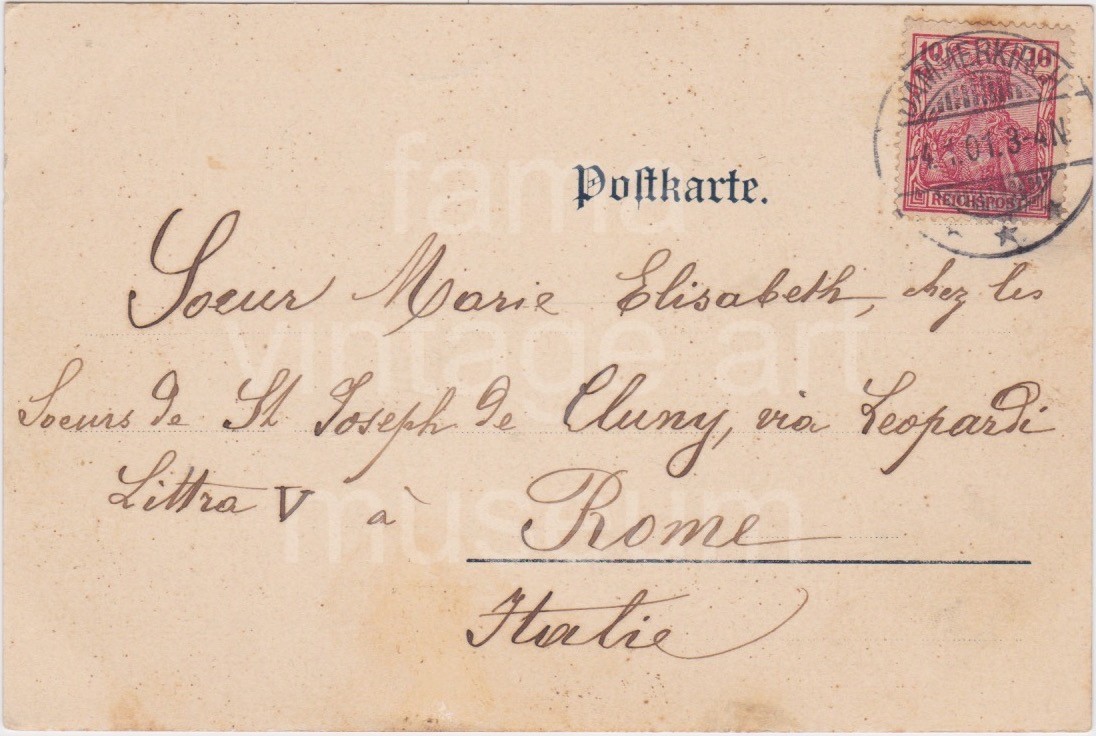 10 10
DAMMERKIRCH
4. 01. 3-4N
REICHSPOST
Postkarte.
fama
vintage art
museum
Soeur Marie Elisabeth, chez les
Soeurs de St Joseph de Cluny, via Leopardi
Littra V à
Rome
Italie